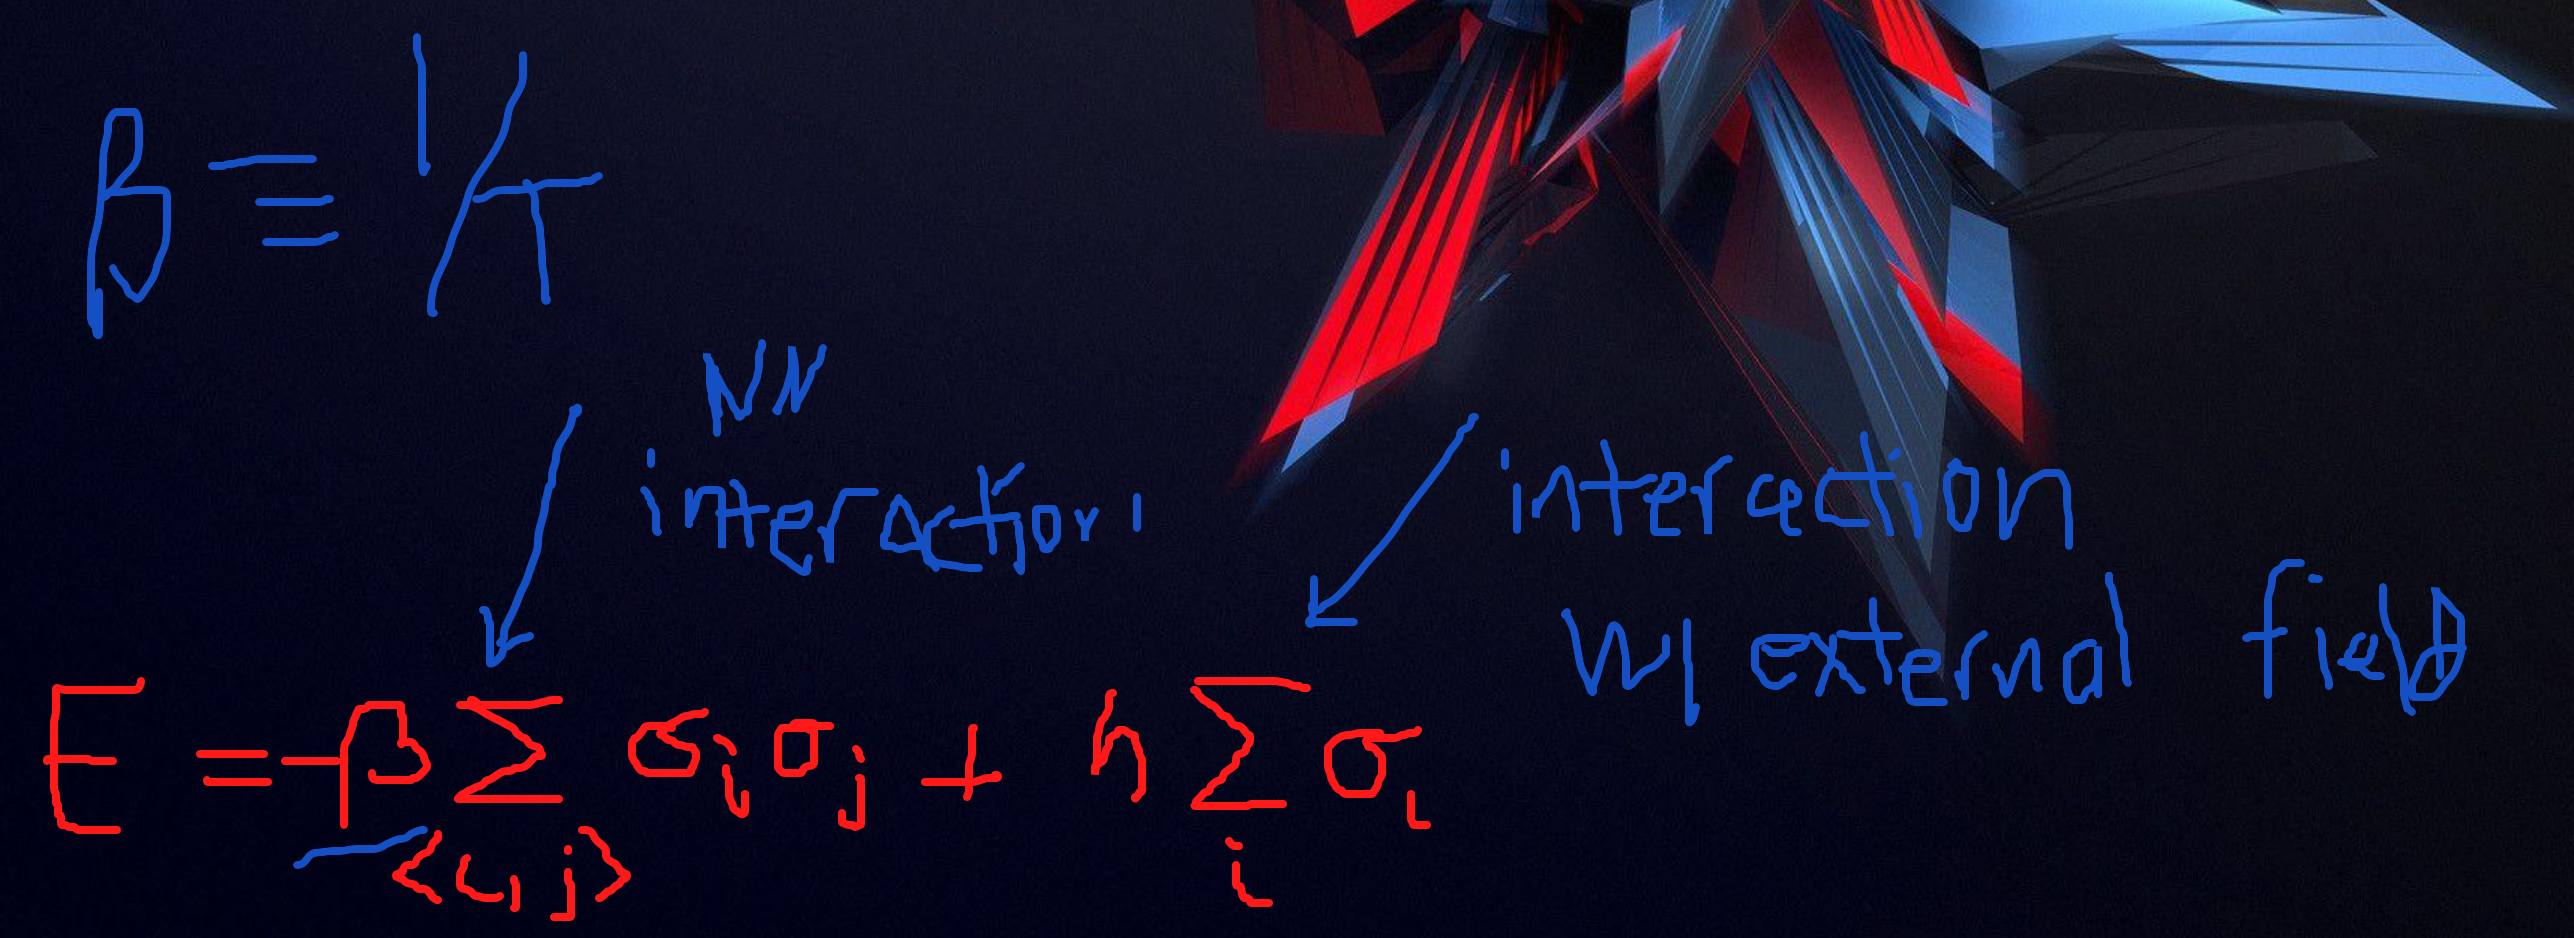 β ≡ 1/T
NN
interaction
interaction
w/ external field
E = -β Σ σi σj + h Σ σi
<i,j> i